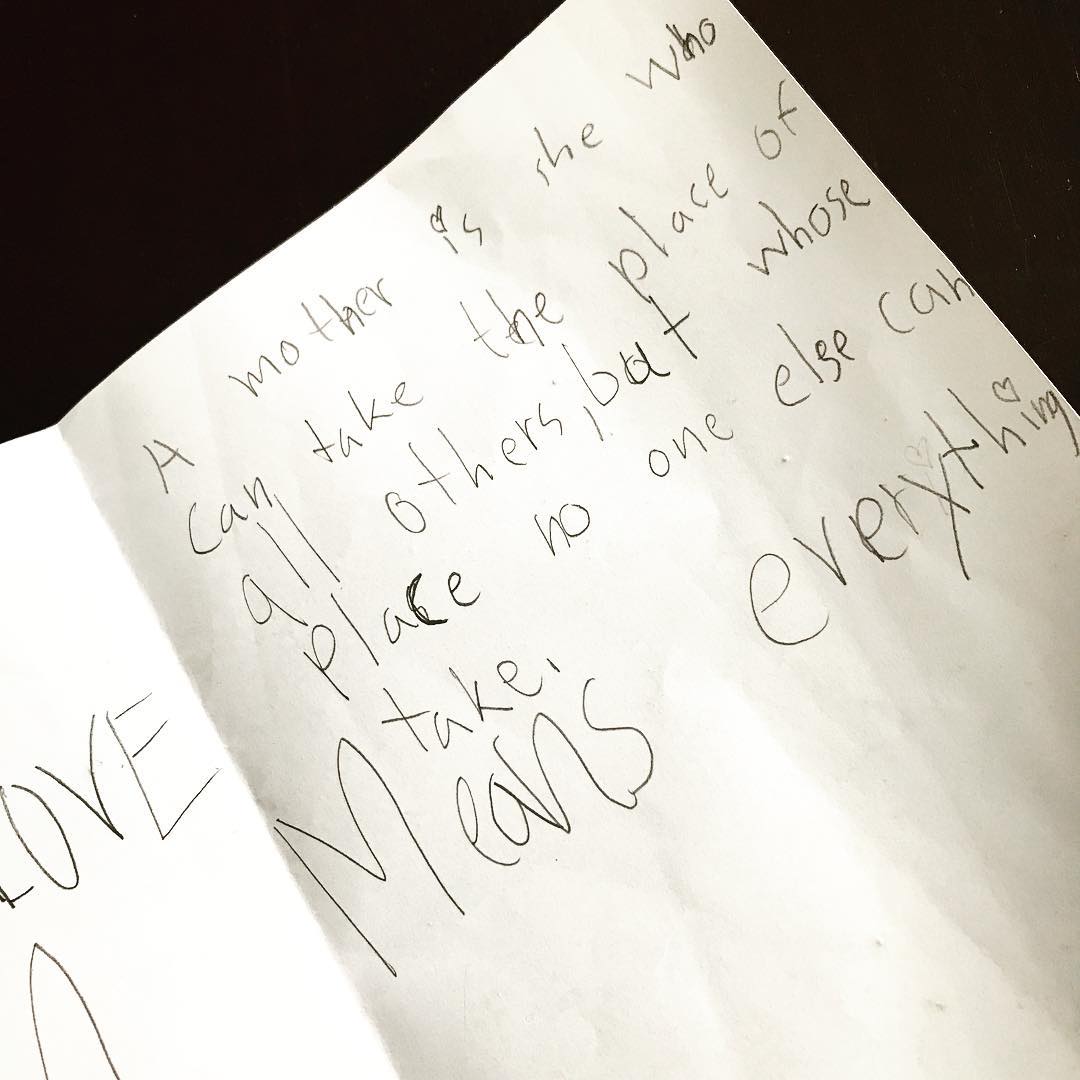 LOVE
A mother is she who
can take the place of
all others, but whose
place no one else can
take.
Means everything